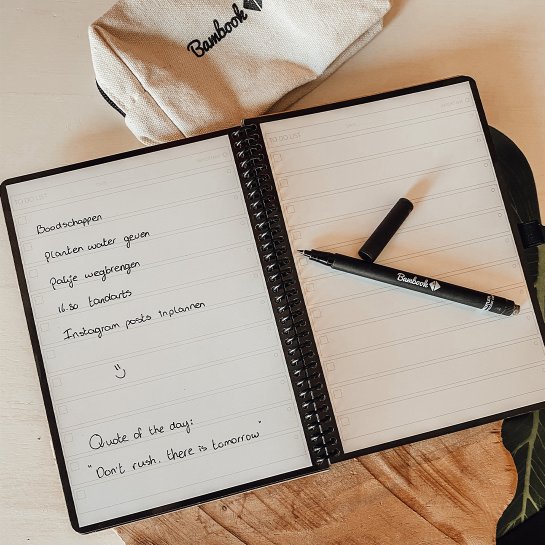 Bambook
TO DO LIST
Boodschappen
Planten water geven
Pakje wegbrengen
16.30 tandarts
Instagram posts inplannen
Quote of the day:
"Don't rush, there is tomorrow"
TO DO LIST
Bambook